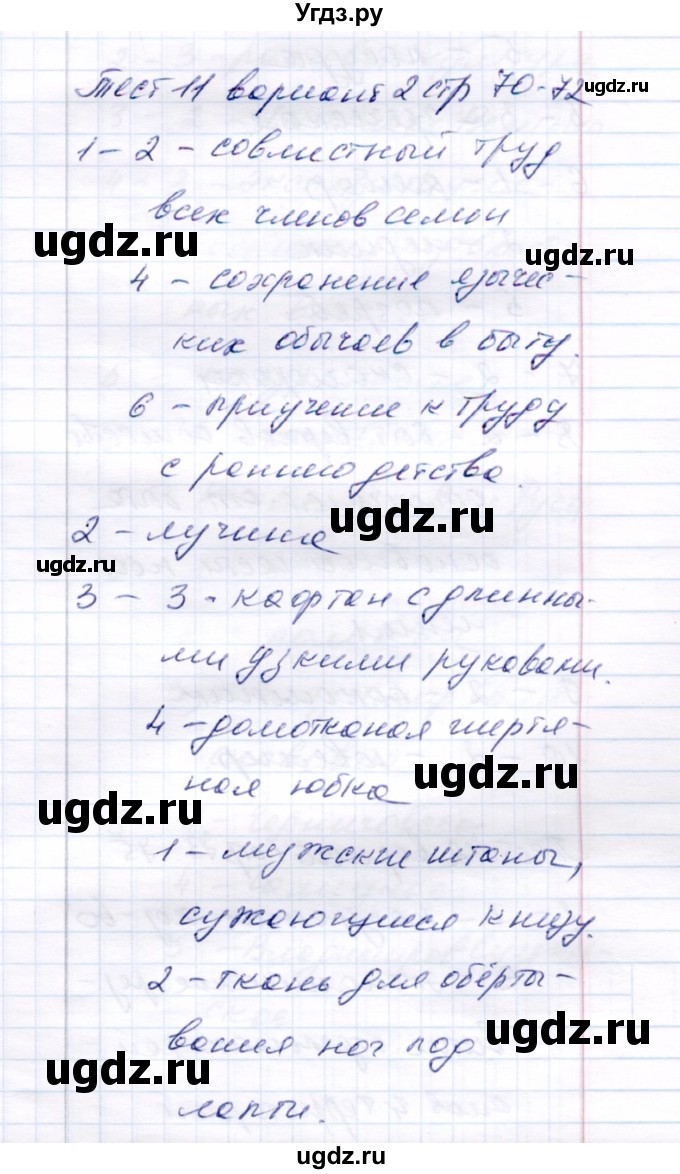 Угдз.ру
Тест 11 вариант 2 стр 70-72
ugdz.ru
1 - 2 - совместный труд
всех членов семьи
ugdz.ru
ugdz.ru
4 - сохранение язычес-
ких обычаев в быту.
6 - приучение к труду
с раннего детства.
ugdz.ru
2 - лучина
ugdz.ru
3 - 3 - кафтан с длинны-
ми узкими рукавами.
4 - домотканая шерстя-
ugdz.ru
ная юбка
ugdz.ru
1 - мужские штаны,
сужающиеся книзу.
2 - ткань для обёрты-
вания ног под
ugdz.ru
ugdz.ru
лапти.
Угдз.ру